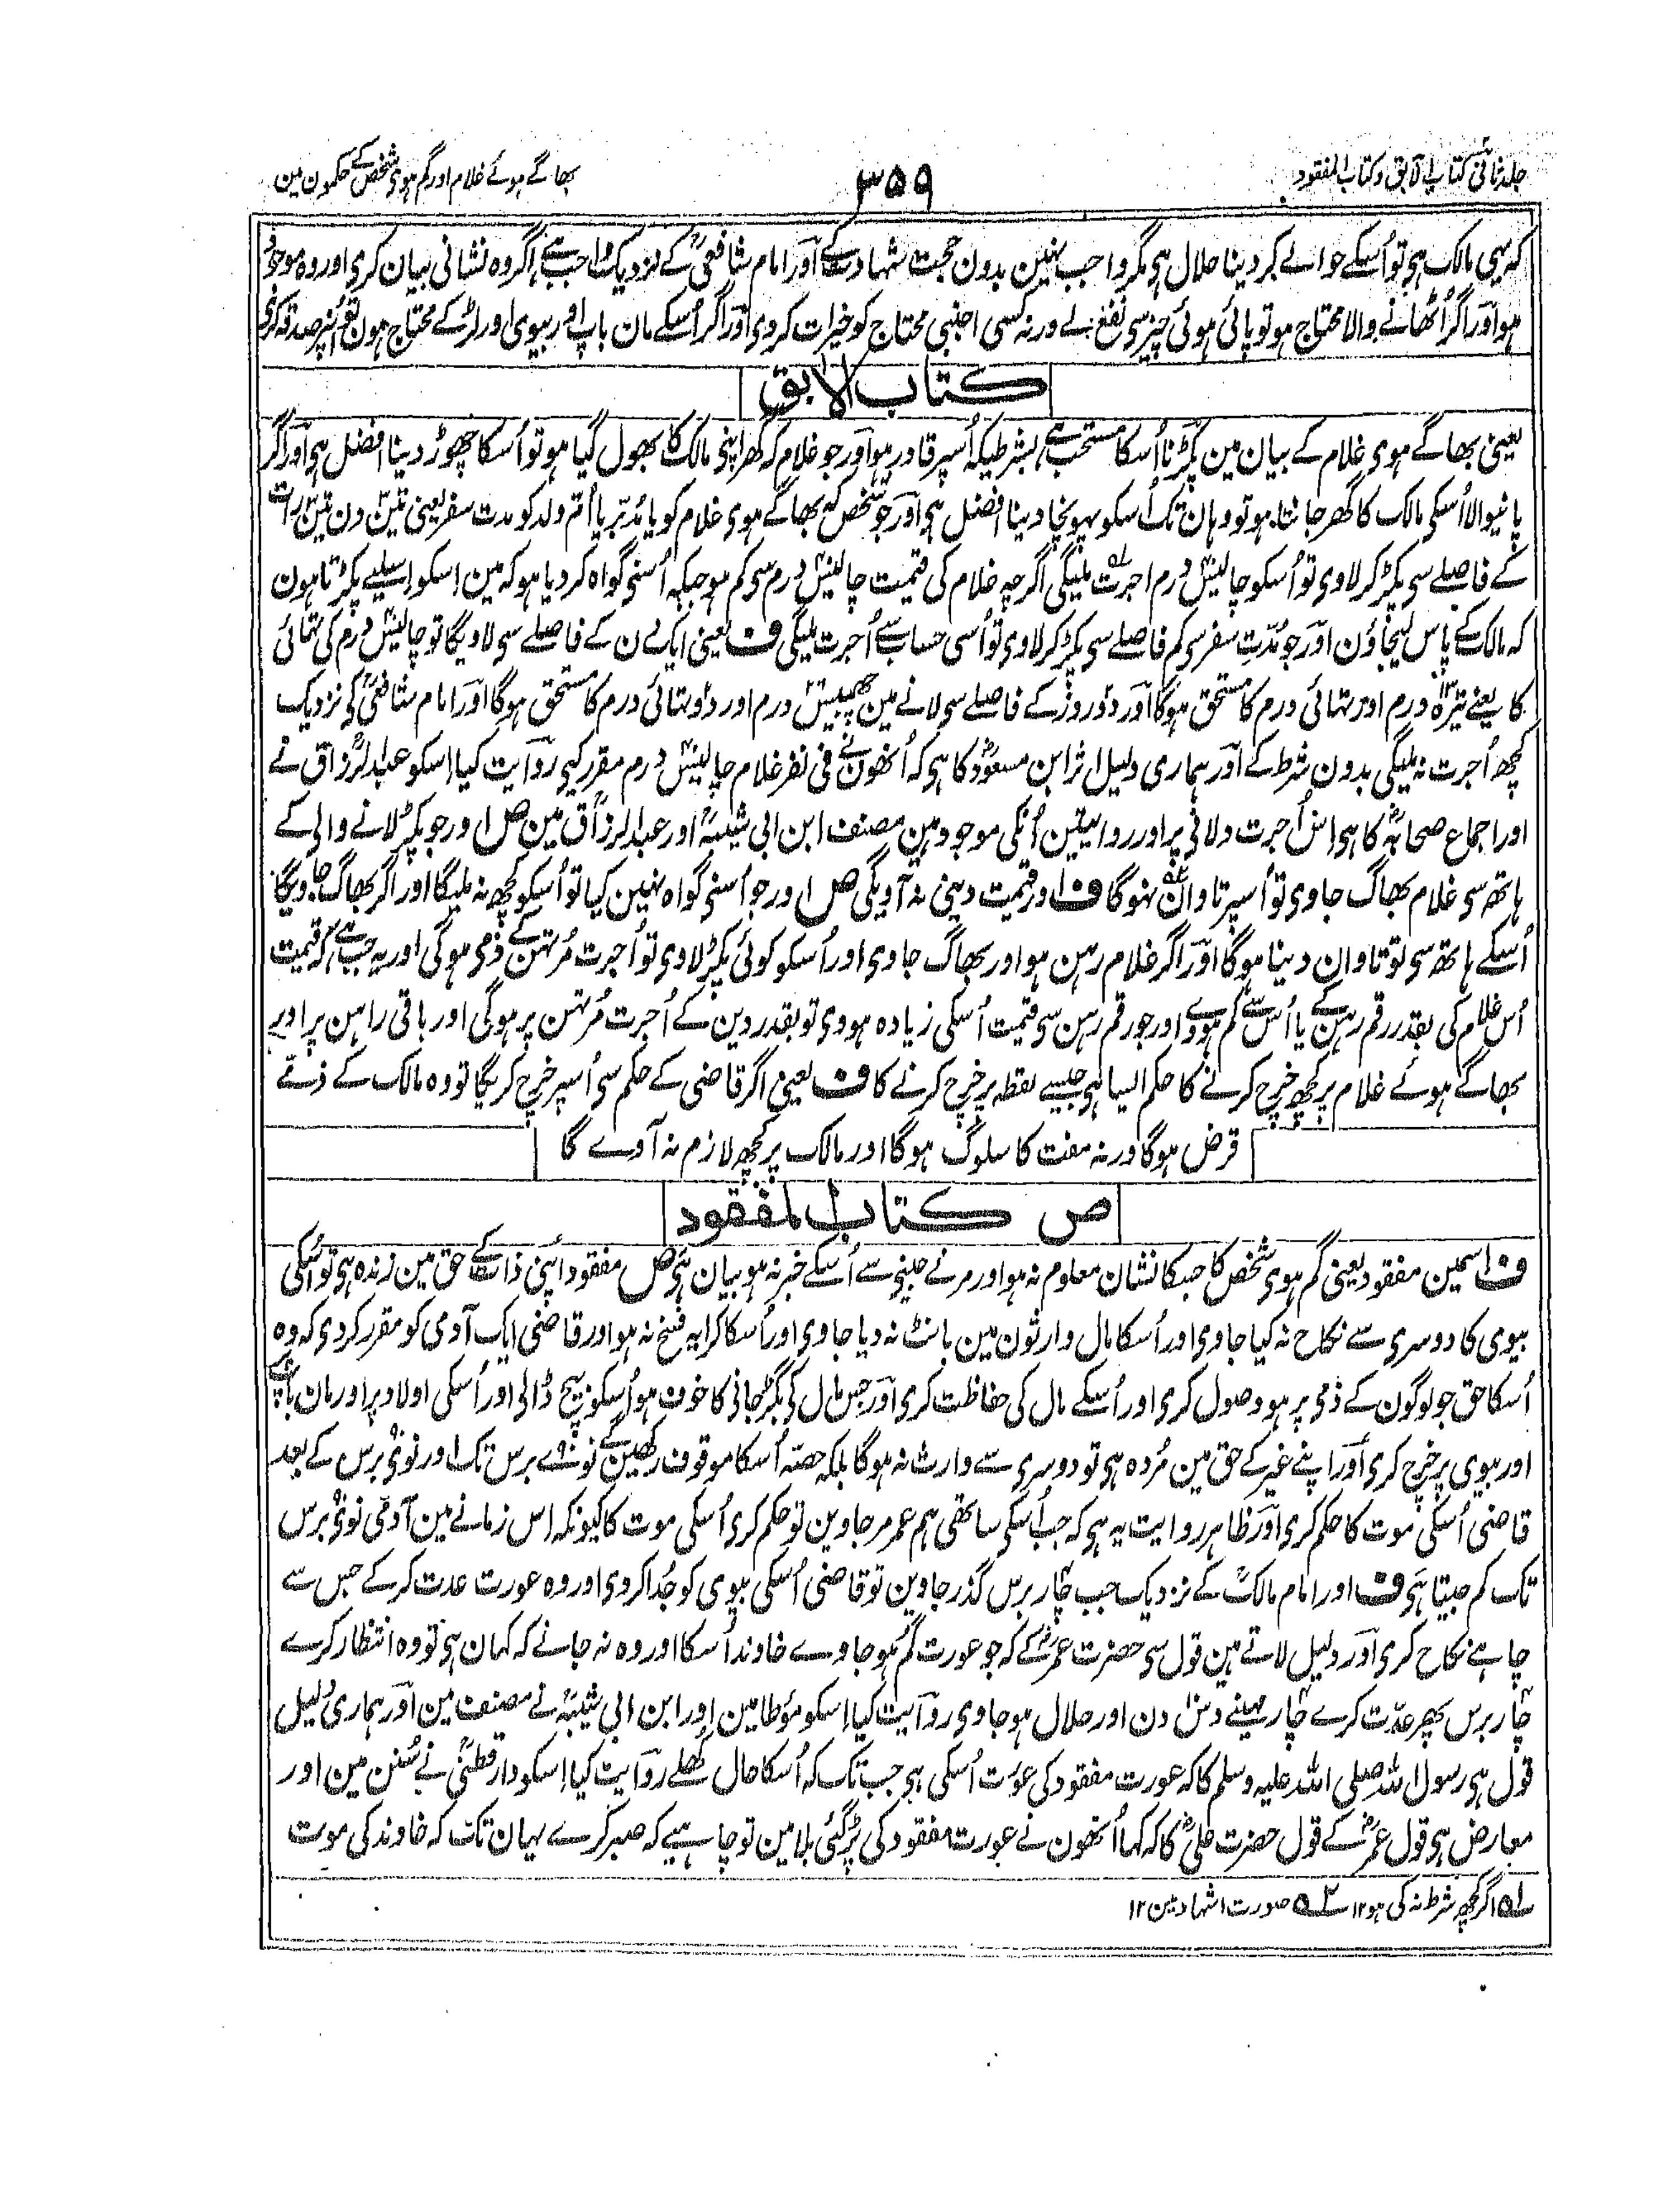 جلد ثانی کتاب الآبق وکتاب المفقود
۳۵۹
بھاگے ہوئے غلام اور گم ہوی شخص کے حکمون مین
کہ یہی مالک ہی تو اُسکے حوالے کر دینا حلال ہی مگر واجب نہین بدون حجت شہادت کے اور امام شافعیؒ کے نزدیک واجب ہے اگر وہ نشانی بیان کری اور وہ موجود
ہو اور اگر اُٹھانے والا محتاج ہو تو پائی ہوئی چیز سی نفع لے ورنہ کسی اجنبی محتاج کو خیرات کر دی اور اگر اُسکے مان باپ اور بیوی اور لڑکے محتاج ہون تو اُنپر صدقہ کری
کتاب الآبق
یعنی بھاگے ہوی غلام کے بیان مین پکڑنا اُسکا مستحب ہے بشرطیکہ اُسپر قادر ہو اور جو غلام کہ گھر اپنی مالک کا بھول گیا ہو تو اُسکا چھوڑ دینا افضل ہی اور اگر
پانیوالا اُسکی مالک کا گھر جانتا ہو تو وہان تک اُسکو پہونچا دینا افضل ہی اور جو شخص کہ بھاگے ہوی غلام کو یا مُدبّر یا اُم ولد کو مدت سفر یعنی تین دن تین رات
کے فاصلے سی پکڑ کر لاوی تو اُسکو چالیس درم اجرت ملیگی اگرچہ غلام کی قیمت چالیس درم سی کم ہو جبکہ اُسنی گواہ کر دیا ہو کہ مین اِسکو اِسلیے پکڑتا ہون
کہ مالک کے پاس لیجاؤن اور جو مُدّتِ سفر سی کم فاصلے سی پکڑ کر لاوی تو اُسی حساب سے اُجرت ملیگی ف یعنی ایک دن کے فاصلے سی لاویگا تو چالیس درم کی تہائی
کا یعنے تیرہ درم اور تہائی درم کا مستحق ہوگا اور دو روز کے فاصلے سی لانے مین چھبیس درم اور دو تہائی درم کا مستحق ہوگا اور امام شافعیؒ کی نزدیک
کچھ اُجرت نہ ملیگی بدون شرط کے اور ہماری دلیل اثر ابن مسعودؓ کا ہی کہ اُنھون نے فی نفر غلام چالیس درم مقرر کیی روایت کیا اسکو عبدالرزاق نے
اور اجماع صحابہؓ کا ہی اس اُجرت دلانی پر اور روایتین اُنکی موجود ہین مصنف ابن ابی شیبہؒ اور عبدالرزاق مین ص اور جو پکڑ لانے والی کے
ہاتھ سی غلام بھاگ جاوی تو اُسپر تاوان نہوگا ف اور قیمت دینی نہ آویگی ص اور جو اُسنی گواہ نہین کیا تو اُسکو کچھ نہ ملیگا اور اگر بھاگ جاویگا
اُسکے ہاتھ سی تو تاوان دینا ہوگا اور اگر غلام رہن ہو اور بھاگ جاوی اور اُسکو کوئی پکڑ لاوی تو اُجرت مُرتہن کے ذمی ہوگی اور یہ جب ہے کہ قیمت
اُس غلام کی بقدر رقم رہن کے یا اُس سے کم ہووے اور جو رقم رہن سی قیمت اُسکی زیادہ ہووی تو بقدر دین کے اُجرت مُرتہن پر ہوگی اور باقی راہن پر اور
بھاگے ہوئے غلام پر کچھ خرچ کرنے کا حکم ایسا ہی جیسے لقطہ پر خرچ کرنے کا ف یعنی اگر قاضی کے حکم سی اُسپر خرچ کریگا تو وہ مالک کے ذمے
قرض ہوگا ورنہ مفت کا سلوک ہوگا اور مالک پر کچھ لازم نہ آوے گا
ص کتاب المفقود
ف اسمین مفقود یعنی گم ہوی شخص کا جسکا نشان معلوم نہ ہو اور مرنے جینے سے اُسکے خبر نہ ہو بیان ہی ص مفقود اپنی ذات کے حق مین زندہ ہی تو اُسکی
بیوی کا دوسری سے نکاح نہ کیا جاوی اور اُسکا مال وارثون مین بانٹ نہ دیا جاوی اور اُسکا کرایہ فسخ نہ ہو اور قاضی ایک آدمی کو مقرر کر دی کہ وہ
اُسکا حق جو لوگون کے ذمی پر ہو وصول کری اور اُسکے مال کی حفاظت کری اور جس مال کی بگڑ جانی کا خوف ہو اُسکو بیچ ڈالی اور اُسکی اولاد پر اور مان باپ
اور بیوی پر خرچ کری اور اپنے غیر کے حق مین مُردہ ہی تو دوسری سے وارث نہ ہوگا بلکہ حصّہ اُسکا موقوف رکھین گے نوّے برس تک اور نوّی برس کے بعد
قاضی اُسکی موت کا حکم کری اور ظاہر روایت یہ ہی کہ جب اُسکی ساتھی ہم عمر مر جاوین تو حکم کری اُسکی موت کا کیونکہ اس زمانے مین آدمی نوّی برس
تک کم جیتا ہی ف اور امام مالکؒ کے نزدیک جب چار برس گذر جاوین تو قاضی اُسکی بیوی کو جُدا کر دی اور وہ عورت عدت کر کے جس سے
چاہے نکاح کری اور دلیل لاتے ہین قول سی حضرت عمرؓ کے کہ جو عورت گم ہو جاوے خاوند اُسکا اور وہ نہ جانے کہ کہان ہی تو وہ انتظار کرے
چار برس پھر عدّت کرے چار مہینے دس دن اور حلال ہو جاوی روایت کیا اِسکو مؤطا مین اور ابن ابی شیبہؒ نے مصنف مین اور ہماری دلیل
قول ہی رسول اللہ صلی اللہ علیہ وسلم کا کہ عورت مفقود کی عورت اُسکی ہی جب تک کہ اُسکا حال کھلے روایت کیا اِسکو دارقطنیؒ نے سُنن مین اور
معارض ہی قول عمرؓ کے قول حضرت علیؓ کا کہ کہا اُنھون نے عورت مفقود کی پڑ گئی بلا مین تو چاہیے کہ صبر کرے یہان تک کہ خاوند کی موت
۱؎ اگر کچھ شرط نہ کی ہو ۱۲ ۲؎ صورت اشہاد مین ۱۲